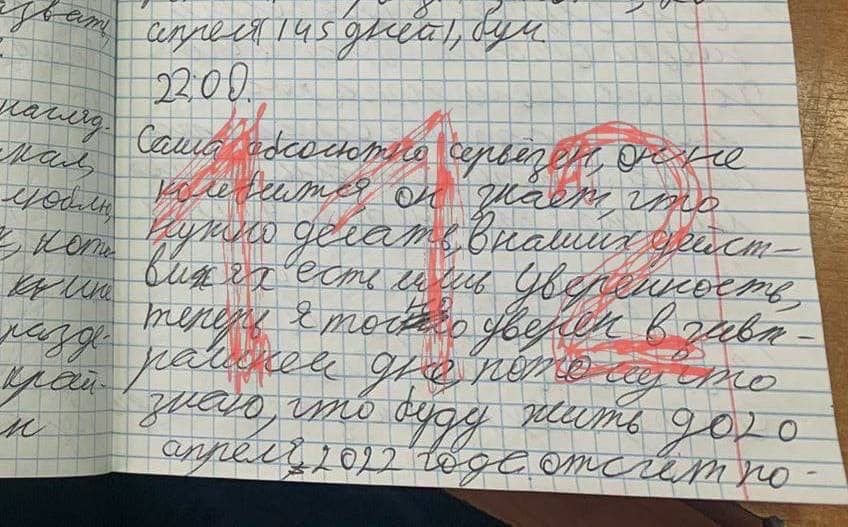 звать,
нагляд-
скал,
люблю,
кот
мне
разде-
край-
н
апреля (145 дней), бум
22:00.
Саша абсолютно серьёзен, он не
колебится, он знает, что
нужно делать, в наших дейст-
виях есть лишь уверенность,
теперь я точно уверен в завт-
рашнем дне, потому что
знаю, что буду жить до 20
апреля, 2022 годе. отсчёт по-
112